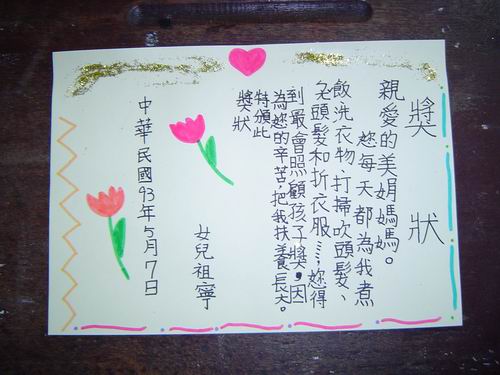 獎狀
親愛的美娟媽媽。
您每天都為我煮
飯、洗衣物、打掃、吹頭髮、
頭髮和折衣服……,您得
到最會照顧孩子獎,因
為您的辛苦,把我扶養長大。
特頒此
獎狀
女兒祖寧
中華民國93年5月7日